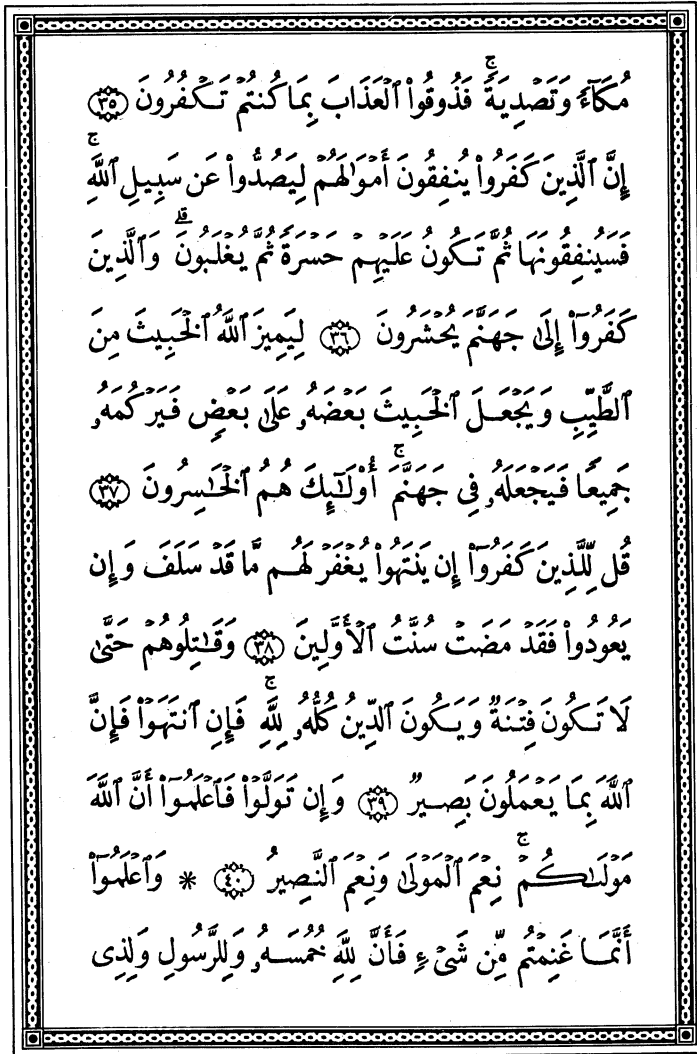 مُكَآءً وَتَصْدِيَةً ۚ فَذُوقُوا۟ ٱلْعَذَابَ بِمَا كُنتُمْ تَكْفُرُونَ ﴿٣٥﴾
إِنَّ ٱلَّذِينَ كَفَرُوا۟ يُنفِقُونَ أَمْوَٰلَهُمْ لِيَصُدُّوا۟ عَن سَبِيلِ ٱللَّهِ ۚ
فَسَيُنفِقُونَهَا ثُمَّ تَكُونُ عَلَيْهِمْ حَسْرَةً ثُمَّ يُغْلَبُونَ ۗ وَٱلَّذِينَ
كَفَرُوٓا۟ إِلَىٰ جَهَنَّمَ يُحْشَرُونَ ﴿٣٦﴾ لِيَمِيزَ ٱللَّهُ ٱلْخَبِيثَ مِنَ
ٱلطَّيِّبِ وَيَجْعَلَ ٱلْخَبِيثَ بَعْضَهُۥ عَلَىٰ بَعْضٍ فَيَرْكُمَهُۥ
جَمِيعًا فَيَجْعَلَهُۥ فِى جَهَنَّمَ ۚ أُو۟لَٰٓئِكَ هُمُ ٱلْخَٰسِرُونَ ﴿٣٧﴾
قُل لِّلَّذِينَ كَفَرُوٓا۟ إِن يَنتَهُوا۟ يُغْفَرْ لَهُم مَّا قَدْ سَلَفَ وَإِن
يَعُودُوا۟ فَقَدْ مَضَتْ سُنَّتُ ٱلْأَوَّلِينَ ﴿٣٨﴾ وَقَٰتِلُوهُمْ حَتَّىٰ
لَا تَكُونَ فِتْنَةٌ وَيَكُونَ ٱلدِّينُ كُلُّهُۥ لِلَّهِ ۚ فَإِنِ ٱنتَهَوْا۟ فَإِنَّ
ٱللَّهَ بِمَا يَعْمَلُونَ بَصِيرٌ ﴿٣٩﴾ وَإِن تَوَلَّوْا۟ فَٱعْلَمُوٓا۟ أَنَّ ٱللَّهَ
مَوْلَىٰكُمْ ۚ نِعْمَ ٱلْمَوْلَىٰ وَنِعْمَ ٱلنَّصِيرُ ﴿٤٠﴾ * وَٱعْلَمُوٓا۟
أَنَّمَا غَنِمْتُم مِّن شَىْءٍ فَأَنَّ لِلَّهِ خُمُسَهُۥ وَلِلرَّسُولِ وَلِذِى